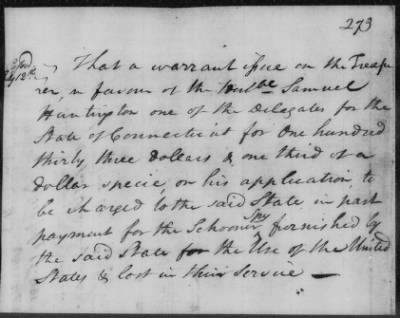 273
That a warrant issue on the Treasu
rer, in favour of the Honble Samuel
Huntington one of the Delegates for the
State of Connecticut for One hundred
thirty three dollars & one third of a
dollar specie, on his application, to
be charged to the said State in part
payment for the Schooner Spy furnished by
the said State for the Use of the United
States & lost in their Service —